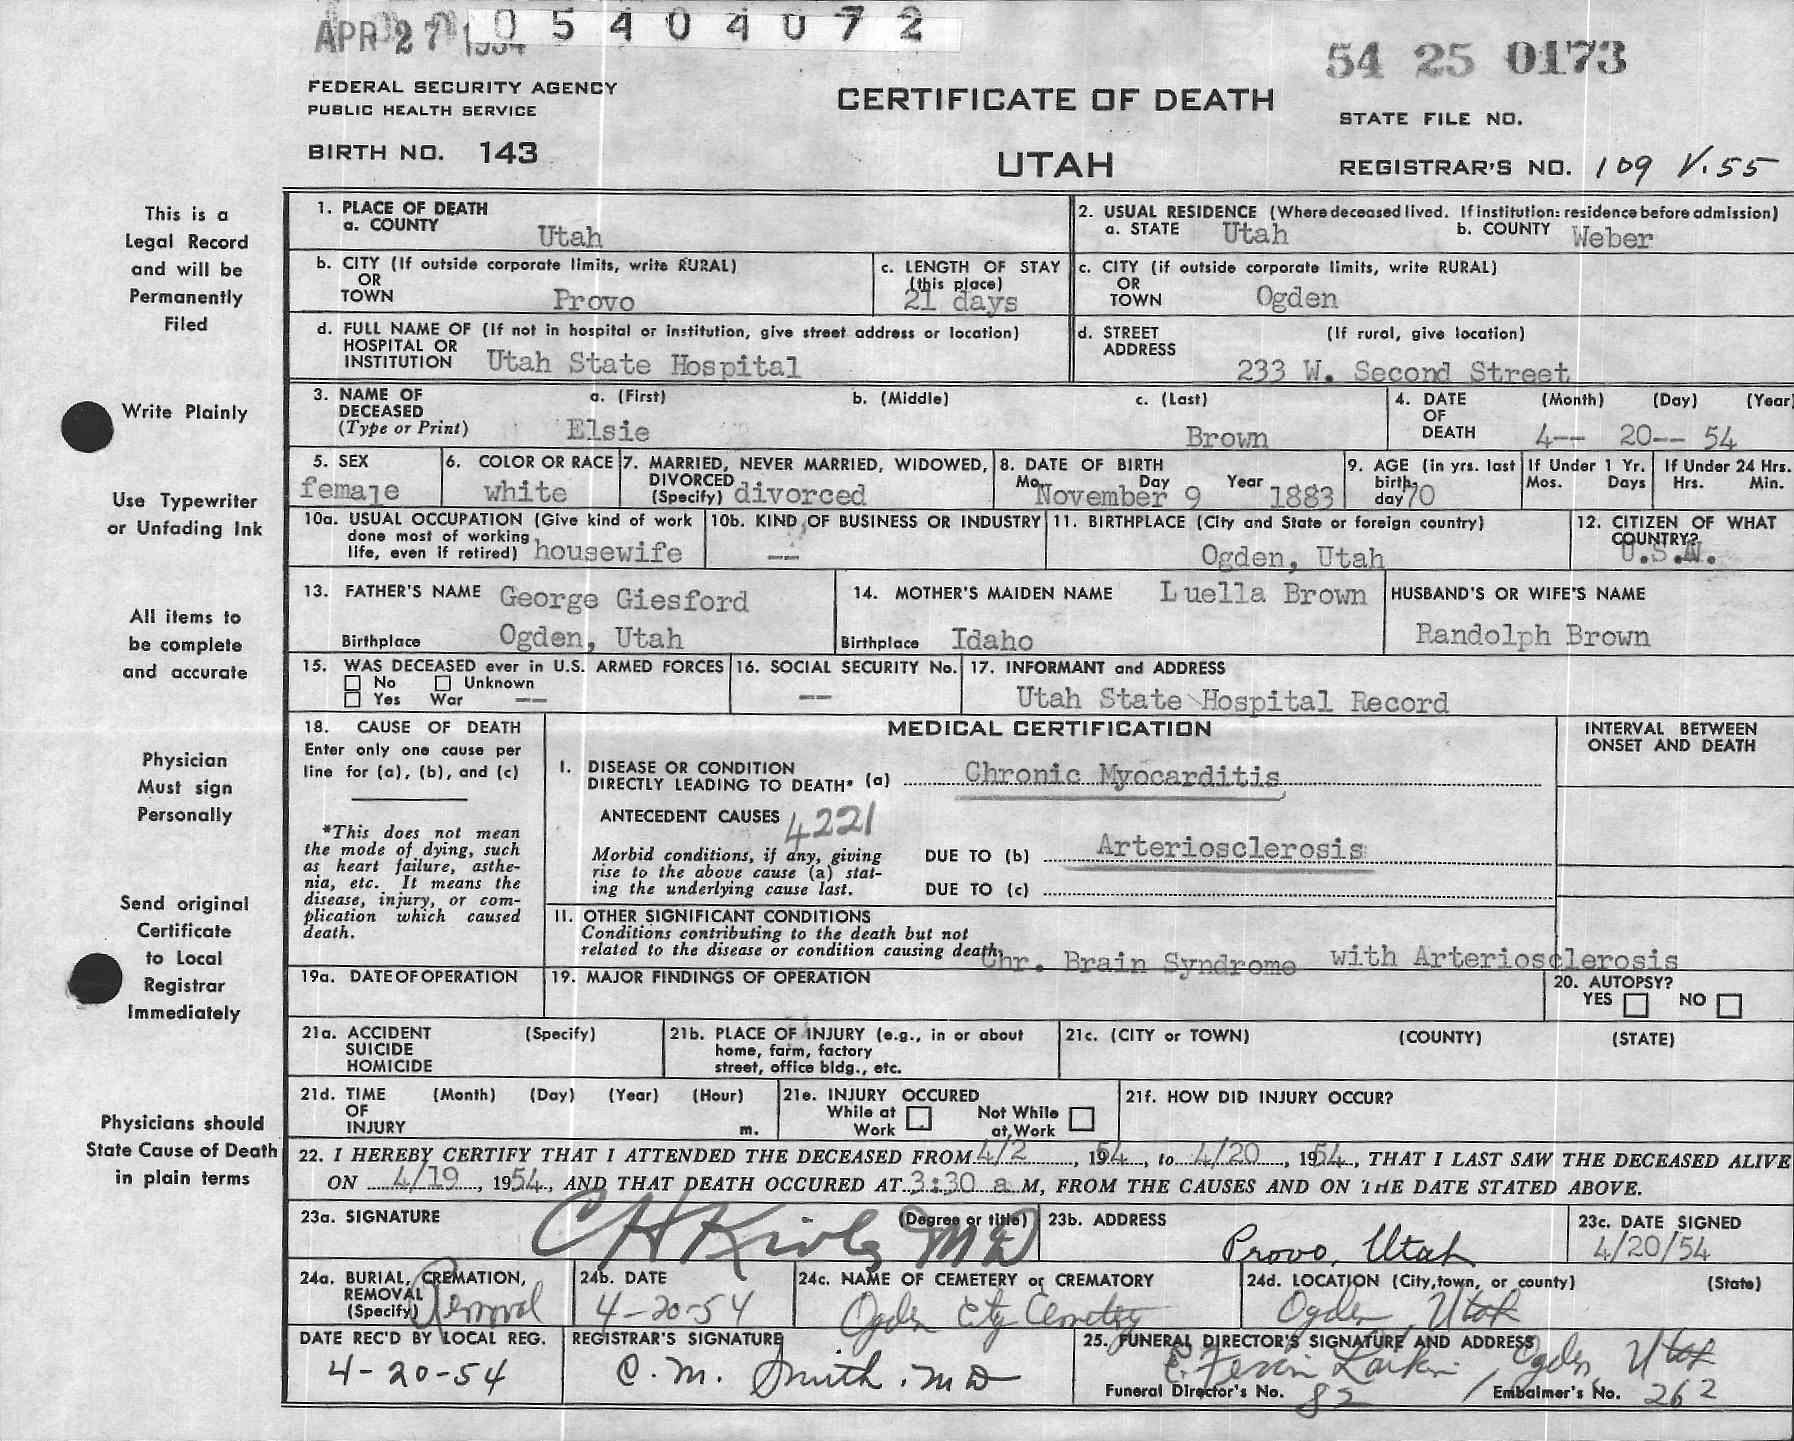 APR 27 1954
05404072
54 25 0173
FEDERAL SECURITY AGENCY
PUBLIC HEALTH SERVICE
CERTIFICATE OF DEATH
STATE FILE NO.
BIRTH NO. 143
UTAH
REGISTRAR'S NO. 109 V.55
This is a
Legal Record
and will be
Permanently
Filed
Write Plainly
Use Typewriter
or Unfading Ink
All items to
be complete
and accurate
Physician
Must sign
Personally
Send original
Certificate
to Local
Registrar
Immediately
Physicians should
State Cause of Death
in plain terms
1. PLACE OF DEATH
a. COUNTY Utah
2. USUAL RESIDENCE (Where deceased lived. If institution: residence before admission)
a. STATE Utah b. COUNTY Weber
b. CITY (If outside corporate limits, write RURAL)
OR
TOWN Provo
c. LENGTH OF STAY
(this place)
21 days
c. CITY (if outside corporate limits, write RURAL)
OR
TOWN Ogden
d. FULL NAME OF (If not in hospital or institution, give street address or location)
HOSPITAL OR
INSTITUTION Utah State Hospital
d. STREET (If rural, give location)
ADDRESS
233 W. Second Street
3. NAME OF a. (First) b. (Middle) c. (Last)
DECEASED
(Type or Print) Elsie Brown
4. DATE (Month) (Day) (Year
OF
DEATH 4-- 20-- 54
5. SEX
female
6. COLOR OR RACE
white
7. MARRIED, NEVER MARRIED, WIDOWED,
DIVORCED
(Specify) divorced
8. DATE OF BIRTH
Mo. Day Year
November 9 1883
9. AGE (in yrs. last
birth-
day 70
If Under 1 Yr.
Mos. Days
If Under 24 Hrs.
Hrs. Min.
10a. USUAL OCCUPATION (Give kind of work
done most of working
life, even if retired) housewife
10b. KIND OF BUSINESS OR INDUSTRY
--
11. BIRTHPLACE (City and State or foreign country)
Ogden, Utah
12. CITIZEN OF WHAT
COUNTRY?
13. FATHER'S NAME George Giesford
Birthplace Ogden, Utah
14. MOTHER'S MAIDEN NAME Luella Brown
Birthplace Idaho
HUSBAND'S OR WIFE'S NAME
Randolph Brown
15. WAS DECEASED ever in U.S. ARMED FORCES
No Unknown
Yes War --
16. SOCIAL SECURITY No.
--
17. INFORMANT and ADDRESS
Utah State Hospital Record
18. CAUSE OF DEATH
Enter only one cause per
line for (a), (b), and (c)
*This does not mean
the mode of dying, such
as heart failure, asthe-
nia, etc. It means the
disease, injury, or com-
plication which caused
death.
MEDICAL CERTIFICATION
INTERVAL BETWEEN
ONSET AND DEATH
I. DISEASE OR CONDITION
DIRECTLY LEADING TO DEATH* (a) Chronic Myocarditis
ANTECEDENT CAUSES 4221
Morbid conditions, if any, giving
rise to the above cause (a) stat-
ing the underlying cause last.
DUE TO (b) Arteriosclerosis
DUE TO (c)
II. OTHER SIGNIFICANT CONDITIONS
Conditions contributing to the death but not
related to the disease or condition causing death.
Chr. Brain Syndrome with Arteriosclerosis
19a. DATE OF OPERATION
19. MAJOR FINDINGS OF OPERATION
20. AUTOPSY?
YES NO
21a. ACCIDENT (Specify)
SUICIDE
HOMICIDE
21b. PLACE OF INJURY (e.g., in or about
home, farm, factory
street, office bldg., etc.
21c. (CITY or TOWN) (COUNTY) (STATE)
21d. TIME (Month) (Day) (Year) (Hour)
OF
INJURY m.
21e. INJURY OCCURED
While at Work Not While at Work
21f. HOW DID INJURY OCCUR?
22. I HEREBY CERTIFY THAT I ATTENDED THE DECEASED FROM 4/2, 1954, to 4/20, 1954, THAT I LAST SAW THE DECEASED ALIVE
ON 4/19, 1954, AND THAT DEATH OCCURED AT 3:30 a M, FROM THE CAUSES AND ON THE DATE STATED ABOVE.
23a. SIGNATURE (Degree or title)
MD
23b. ADDRESS
Provo, Utah
23c. DATE SIGNED
4/20/54
24a. BURIAL, CREMATION,
REMOVAL
(Specify) Removal
24b. DATE
4-20-54
24c. NAME OF CEMETERY or CREMATORY
Ogden City Cemetery
24d. LOCATION (City, town, or county) (State)
Ogden, Utah
DATE REC'D BY LOCAL REG.
4-20-54
REGISTRAR'S SIGNATURE
C. M. Smith, MD
25. FUNERAL DIRECTOR'S SIGNATURE AND ADDRESS
Larkin, Ogden, Utah
Funeral Director's No. 82 Embalmer's No. 262